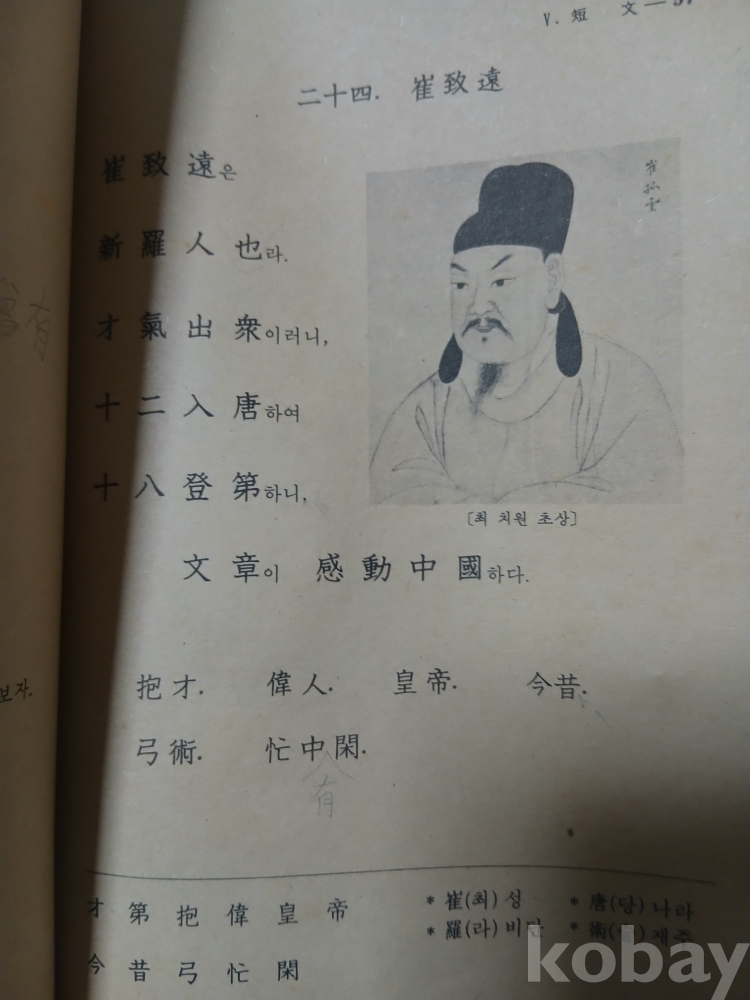 V. 短 文—57
二十四. 崔致遠
崔致遠은
新羅人也라.
才氣出衆이러니,
十二入唐하여
十八登第하니,
文章이 感動中國하다.
崔孤雲
[최 치원 초상]
抱才. 偉人. 皇帝. 今昔.
弓術. 忙中閑.
有
有
보자.
才 第 抱 偉 皇 帝
今 昔 弓 忙 閑
* 崔(최) 성 * 唐(당) 나라
* 羅(라) 비단 * 術( ) 재주
kobay